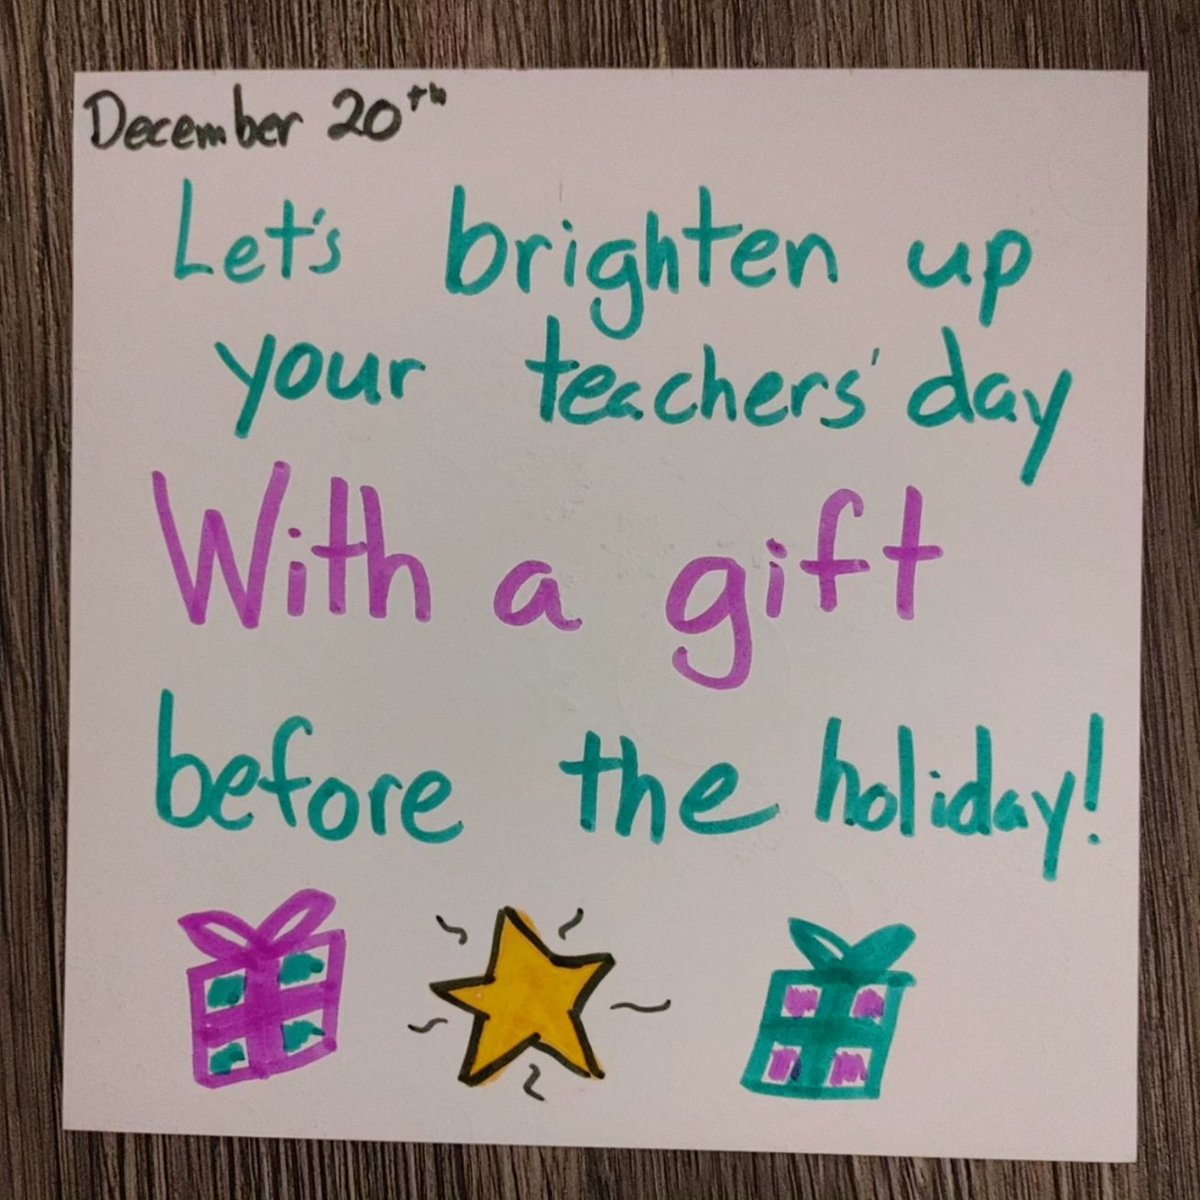 December 20th
Let's brighten up
your teachers' day
With a gift
before the holiday!